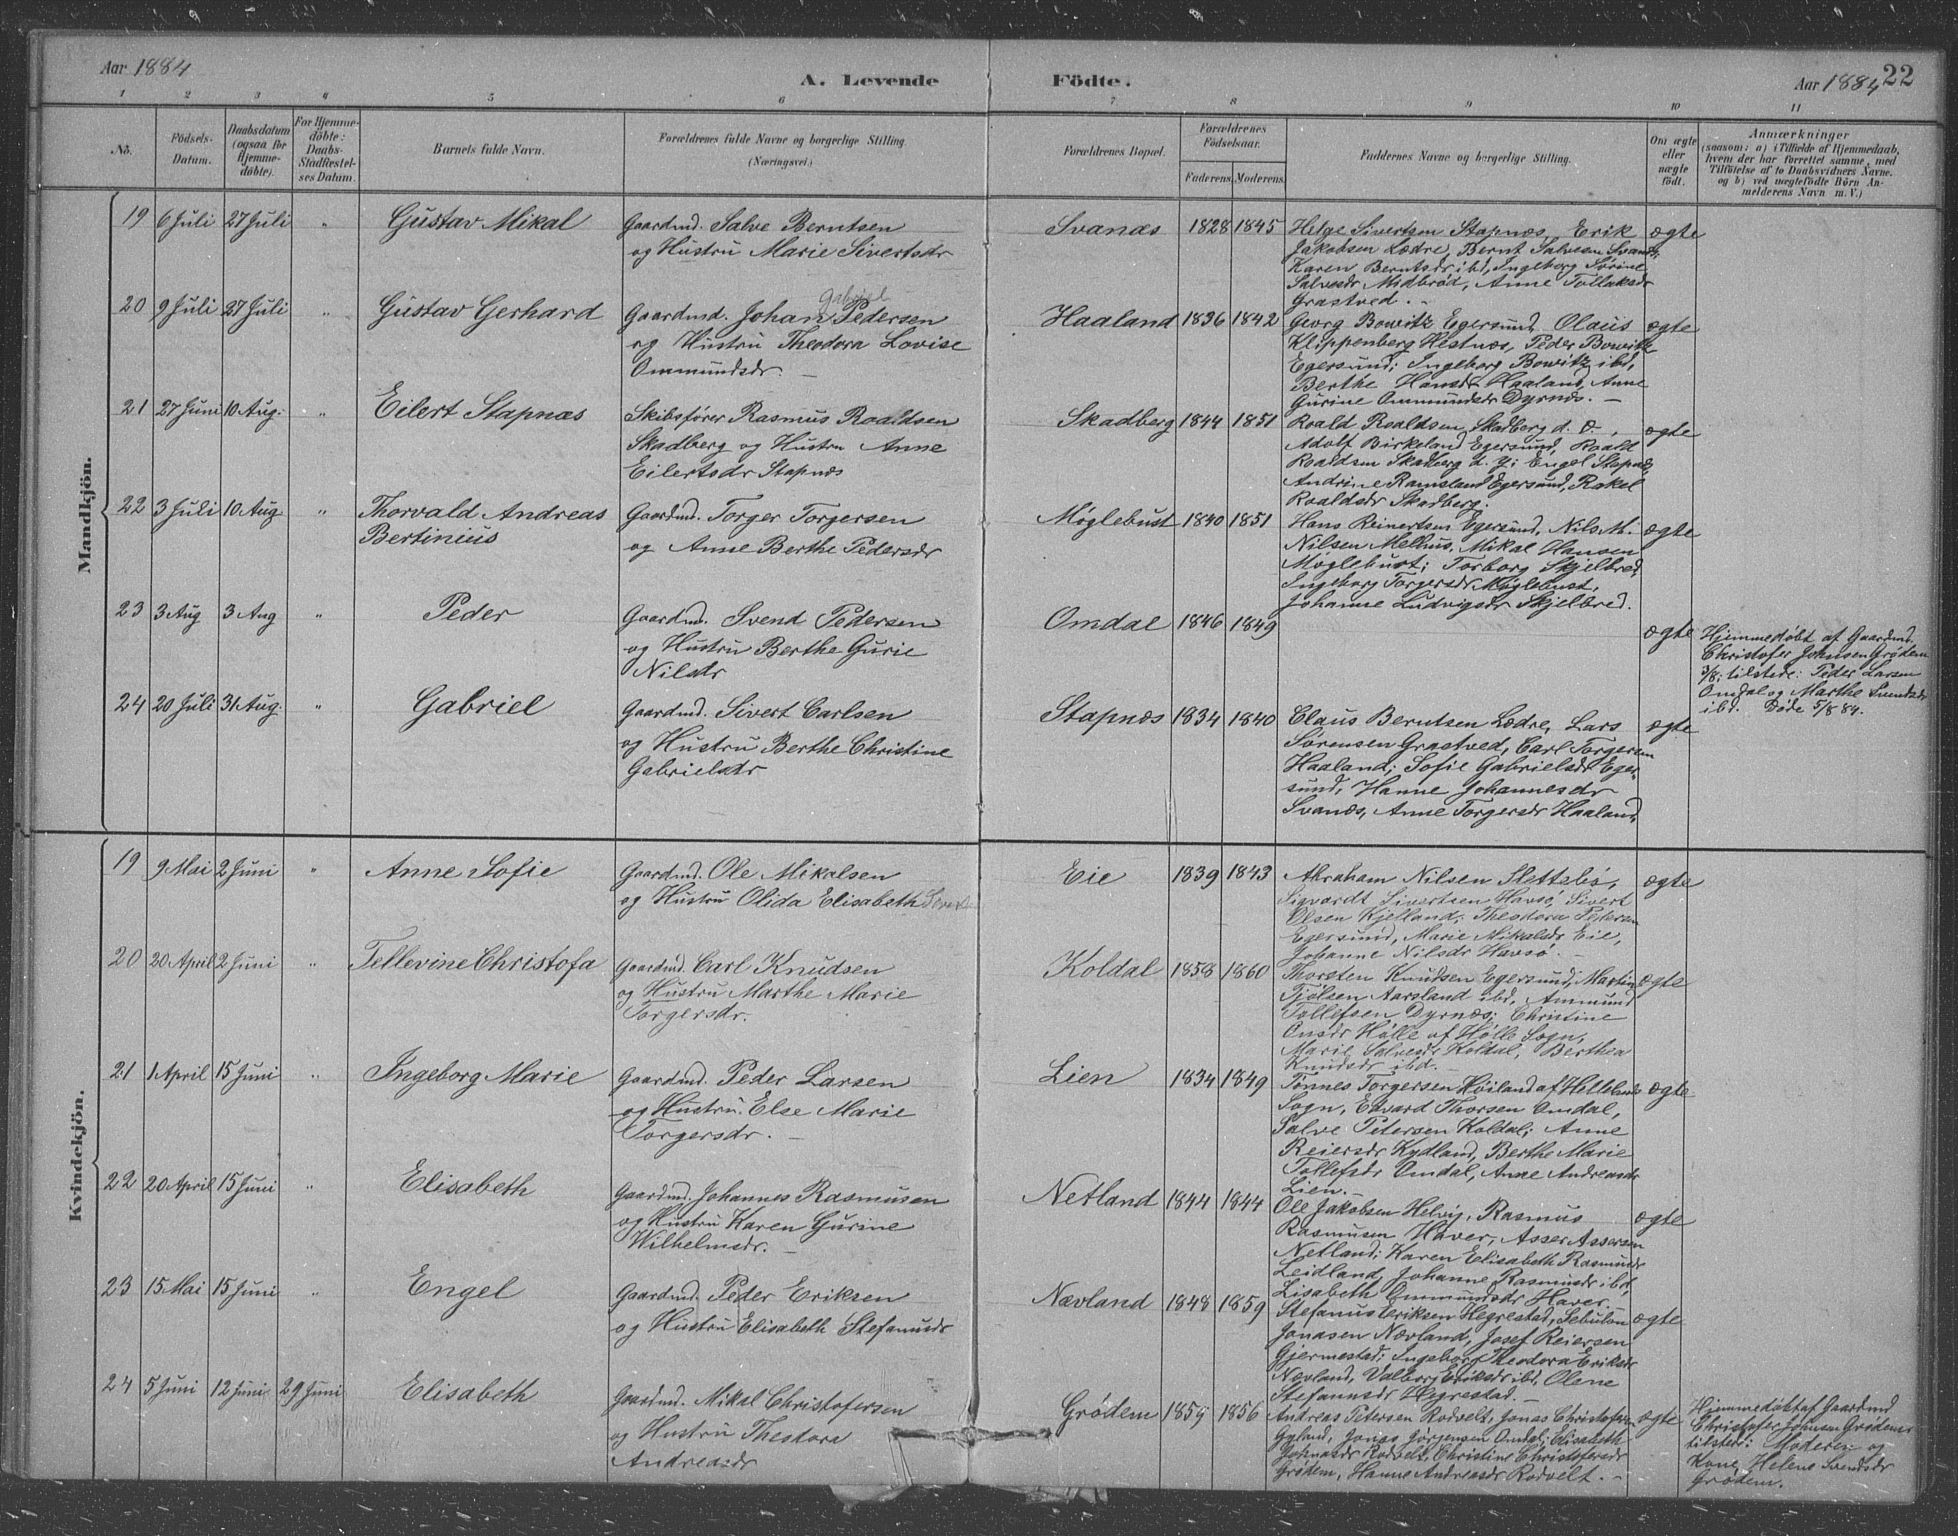 Aar 1884
A. Levende Födte.
Aar 1884 22
1 2 3 4 5 6 7 8 9 10 11
No.
Födsels-
Datum.
Daabsdatum
(ogsaa for
Hjemme-
döbte).
For Hjemme-
döbte:
Daabs-
Stadfæstel-
ses Datum.
Barnets fulde Navn.
Forældrenes fulde Navne og borgerlige Stilling.
(Næringsvei.)
Forældrenes Bopæl.
Forældrenes
Födselsaar.
Faderens. Moderens.
Faddernes Navne og borgerlige Stilling.
Om ægte
eller
uægte
födt.
Anmærkninger
(saasom: a) i Tilfælde af Hjemmedaab,
hvem der har forrettet samme, med
Tilföielse af to Daabsvidners Navne.
og b) ved uægtefödte Börn An-
melderens Navn m. V.)
Mandkjön.
19 6 Juli 27 Juli " Gustav Mikal
Gaardmd. Salve Berntsen
og Hustru Marie Sivertsdr
Svanæs 1828 1845
Helge Sivertsen Stapnæs, Erik
Jakobsen Lædre, Bernt Salvesen Svanæs,
Karen Berntsdr ibd, Ingeborg Sørine
Salvesdr Midbrød, Anne Tollaksdr
Grastved.
ægte
20 9 Juli 27 Juli " Gustav Gerhard
Gabriel
Gaardmd. Johan Pedersen
og Hustru Theodora Lovise
Ommundsdr.
Haaland 1836 1842
Georg Bowitz Egersund, Olaus
Klippenberg Hestnæs, Peder Bowitz
Egersund; Ingeborg Bowitz ibd,
Berthe Hansdr Haaland, Anne
Gurine Ommundsdr Dyrnæs.
ægte
21 27 Juni 10 Aug. " Eilert Stapnæs
Skibsfører Rasmus Roaldsen
Skadberg og Hustru Anne
Eilertsdr Stapnæs
Skadberg 1844 1851
Roald Roaldsen Skadberg d. Æ.,
Adolf Birkeland Egersund, Roald
Roaldsen Skadberg d. y; Engel Stapnæs,
Andrine Ramsland Egersund, Rakel
Roaldsdr Skadberg.
ægte
22 3 Juli 10 Aug " Thorvald Andreas
Bertinius
Gaardmd. Torger Torgersen
og Anne Berthe Pedersdr
Møglebust 1840 1851
Hans Reinertsen Egersund, Nils M.
Nilsen Melhus, Mikal Hansen
Møglebust; Torborg Skjelbred,
Ingeborg Torgersdr Møglebust,
Johanne Ludvigsdr Skjelbred.
ægte
23 3 Aug 3 Aug " Peder
Gaardmd. Svend Pedersen
og Hustru Berthe Gurie
Nilsdr
Omdal 1846 1849
ægte
Hjemmedøbt af Gaardmd.
Christofer Johnsen Grødem
3/8; tilstede: Peder Larsen
Omdal og Marthe Svendsdr
ibd. Døde 5/8 84.
24 20 Juli 31 Aug. " Gabriel
Gaardmd. Sivert Carlsen
og Hustru Berthe Christine
Gabrielsdr
Stapnæs 1834 1840
Claus Berntsen Lædre, Lars
Sørensen Grastved, Carl Torgersen
Haaland; Sofie Gabrielsdr Eger-
sund, Hanne Johannesdr
Svanæs, Anne Torgersdr Haaland.
ægte
Kvindekjön.
19 9 Mai 2 Juni " Anne Sofie
Gaardmd. Ole Mikalsen
og Hustru Olida Elisabeth
Eie 1839 1843
Abraham Nilsen Slettebø,
Sigvardt Sivertsen Havsø, Sivert
Olsen Kjelland; Theodora Petersen
Egersund, Marie Mikalsdr Eie,
Johanne Nilsdr Havsø.
ægte
20 20 April 2 Juni " Tellevine Christofa
Gaardmd. Carl Knudsen
og Hustru Marthe Marie
Torgersdr.
Koldal 1858 1860
Thorsten Knudsen Egersund, Martin
Tjølsen Aarsland ibd, Ammund
Tollefsen Dyrnæs; Christine
Onsdr Hølle af Hølle Sogn,
Marie Salvesdr Koldal, Berthea
Knudsdr ibd.
ægte
21 1 April 15 Juni " Ingeborg Marie
Gaardmd. Peder Larsen
og Hustru Else Marie
Torgersdr.
Lien 1834 1849
Tønnes Torgersen Høiland af Hellelands
Sogn, Edvard Thorsen Omdal,
Salve Petersen Koldal; Anne
Reiersdr Kydland, Berthe Marie
Tollefsdr Omdal, Anne Andreasdr
Lien.
ægte
22 20 April 15 Juni " Elisabeth
Gaardmd. Johannes Rasmusen
og Hustru Karen Gurine
Wilhelmsdr.
Netland 1844 1844
Ole Jakobsen Helvig, Rasmus
Rasmusen Haver, Asser Assersen
Netland; Karen Elisabeth Rasmusdr
Leidland, Johanne Rasmusdr ibd,
Lisabeth Ommundsdr Haver.
ægte
23 15 Mai 15 Juni " Engel
Gaardmd. Peder Eriksen
og Hustru Elisabeth Stefanusdr
Nævland 1848 1859
Stefanus Eriksen Hegrestad, Sebulon
Jonasen Nævland, Josef Reiersen
Gjermestad; Ingeborg Theodora Eriksdr
Nævland, Valborg Eriksdr ibd, Olene
Stefanusdr Hegrestad.
ægte
24 5 Juni 12 Juni 29 Juni Elisabeth
Gaardmd. Mikal Christofersen
og Hustru Theodora
Andreasdr
Grødem 1859 1856
Andreas Petersen Rodvelt, Jonas Christofersen
Gyland, Jonas Jørgensen Omdal; Elisabeth
Rodvelt, Christine Christofersdr
Grødem, Hanne Andreasdr Rodvelt.
ægte
Hjemmedøbt af Gaardmd
Christofer Johnsen Grødem;
tilstede: Moderen og
Kone Helene Svendsdr
Grødem.